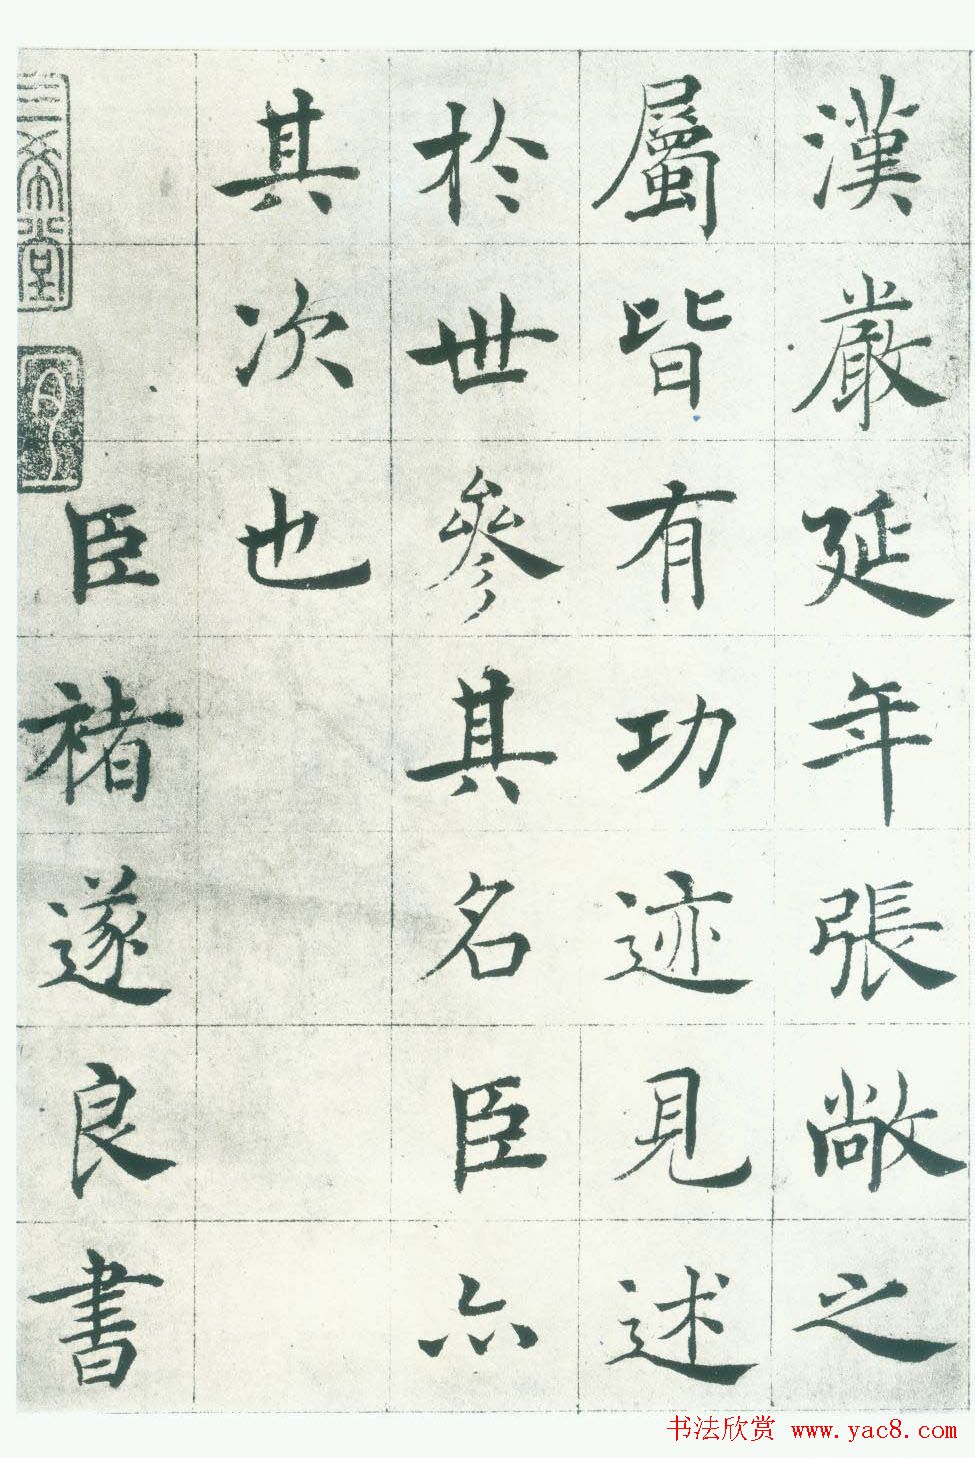 漢嚴延年張敞之
屬皆有功迹見述
於世參其名臣亦
其次也
臣褚遂良書
三希堂
书法欣赏 www.yac8.com